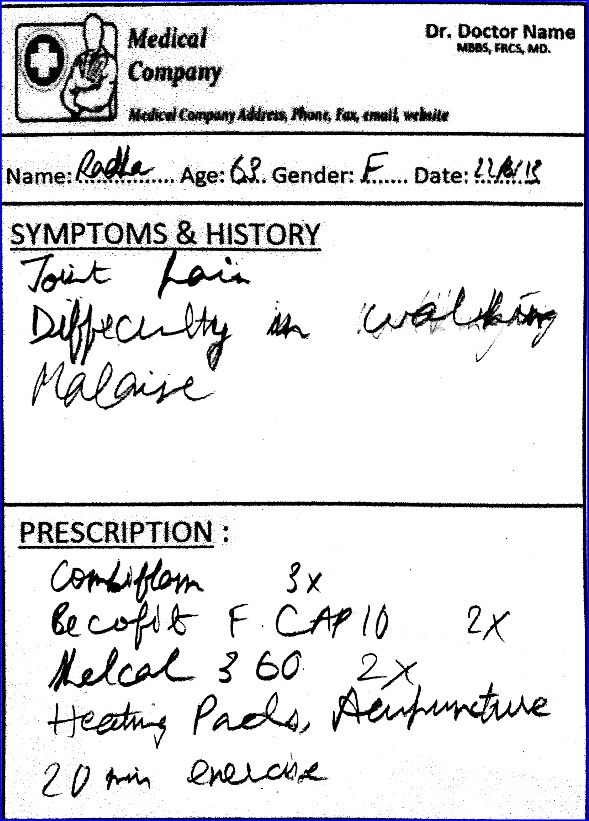 Medical
Company
Dr. Doctor Name
MBBS, FRCS, MD.
Medical Company Address, Phone, Fax, email, website
Name: Radha Age: 63 Gender: F Date:
SYMPTOMS & HISTORY
Joint pain
Diffeculty in walking
Malaise
PRESCRIPTION :
Combiflam 3x
Becofit F CAP 10 2X
360 2X
Heating Pads, Acupuncture
20 min exercise